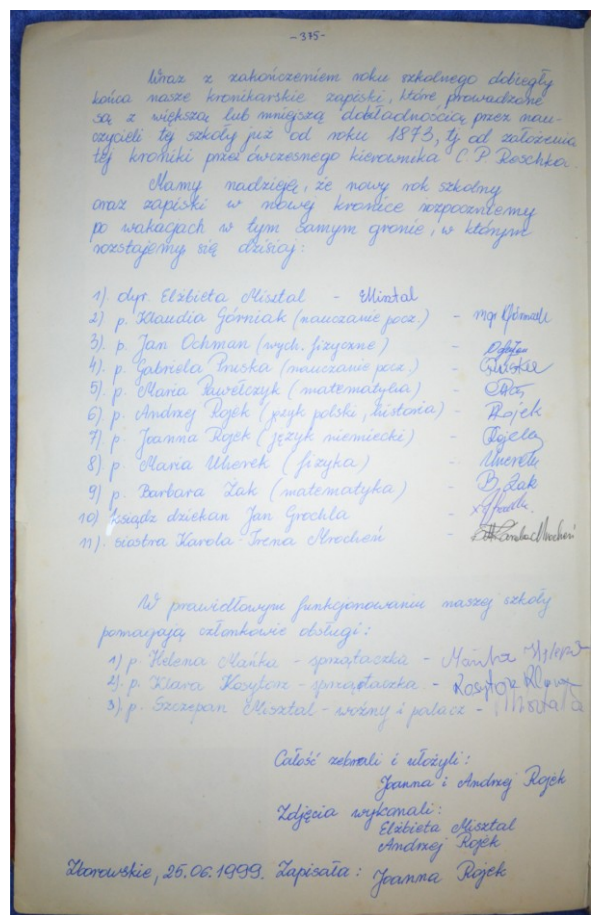 -375-
Wraz z zakończeniem roku szkolnego dobiegły
końca nasze kronikarskie zapiski, które prowadzone
są z większą lub mniejszą dokładnością przez nau-
czycieli tej szkoły już od roku 1873, tj od założenia
tej kroniki przez ówczesnego kierownika C P Reschka.
Mamy nadzieję, że nowy rok szkolny
oraz zapiski w nowej kronice rozpoczniemy
po wakacjach w tym samym gronie, w którym
rozstajemy się dzisiaj:
1). dyr. Elżbieta Misztal - EMisztal
2) p. Klaudia Górniak (nauczanie pocz.) - mgr KGórniak
3). p. Jan Ochman (wych. fizyczne) -
4). p. Gabriela Pruska (nauczanie pocz.) - GPruska
5). p. Maria Pawełczyk (matematyka) -
6) p. Andrzej Rojek (język polski, historia) - ARojek
7) p. Joanna Rojek (język niemiecki) -
8) p. Maria Uherek (fizyka) -
9) p. Barbara Żak (matematyka) - B. Żak
10) ksiądz dziekan Jan Grochla -
11). siostra Karola - Irena Mrocheń -
W prawidłowym funkcjonowaniu naszej szkoły
pomagają członkowie obsługi:
1) p. Helena Mańka - sprzątaczka - Mańka
2). p. Klara Kosytorz - sprzątaczka - Kosytorz Klara
3) p. Szczepan Misztal - woźny i palacz -
Całość zebrali i ułożyli:
Joanna i Andrzej Rojek
Zdjęcia wykonali:
Elżbieta Misztal
Andrzej Rojek
Zborowskie, 25.06.1999. Zapisała: Joanna Rojek